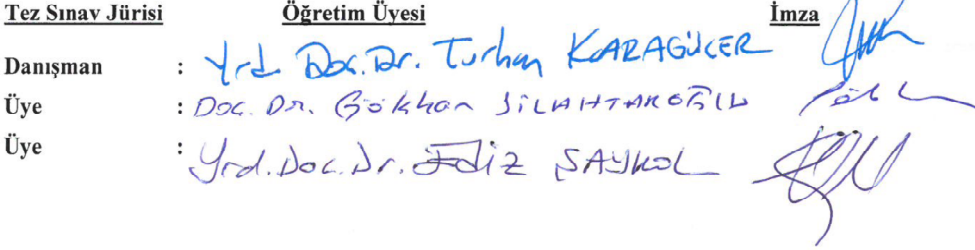 Tez Sınav Jürisi Öğretim Üyesi İmza
Danışman : Yrd. Doç. Dr. Turhan KARAGÜLER
Üye : Doç. Dr. Gökhan SİLAHTAROĞLU
Üye : Yrd. Doç. Dr. Ediz ŞAYKOL